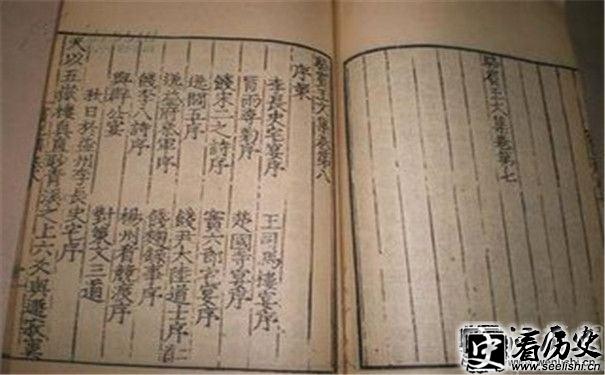 駱賓王文集卷第七
駱賓王文集卷第八
序策
李長史宅宴序 王司馬樓宴序
冒雨尋菊序 楚國寺宴序
餞宋三之詩序 竇六郎宅宴序
五序 餞尹大陸道士序
益府參軍序 餞麹錄事序
餞李八詩序 揚州看競渡序
群公宴 對策文三道
秋日於益州李長史宅序
夫以五嶽樓真 青溪之上六爻與遯寂寞
史 看历史
www.seelishi.cn